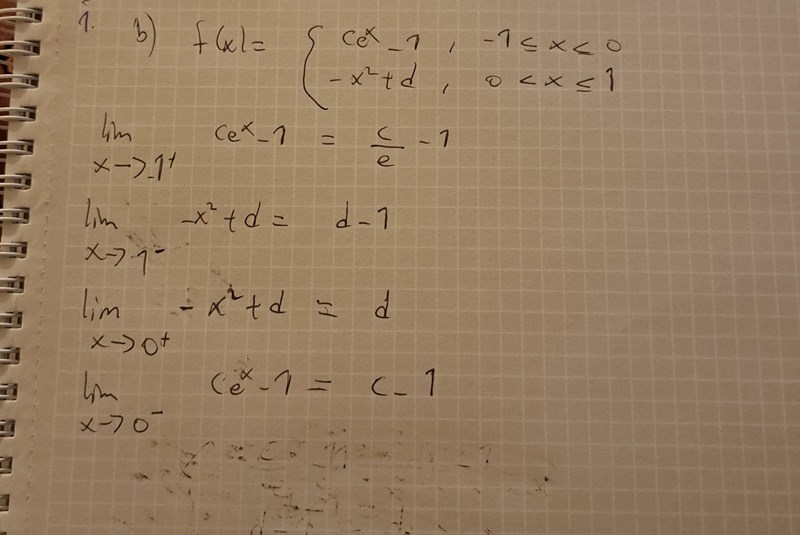 1.
b) f(x) = { ce^x - 1 , -1 ≤ x < 0
-x² + d , 0 < x ≤ 1
lim x→-1⁺ ce^x - 1 = c/e - 1
lim x→1⁻ -x² + d = d - 1
lim x→0⁺ -x² + d = d
lim x→0⁻ ce^x - 1 = c - 1